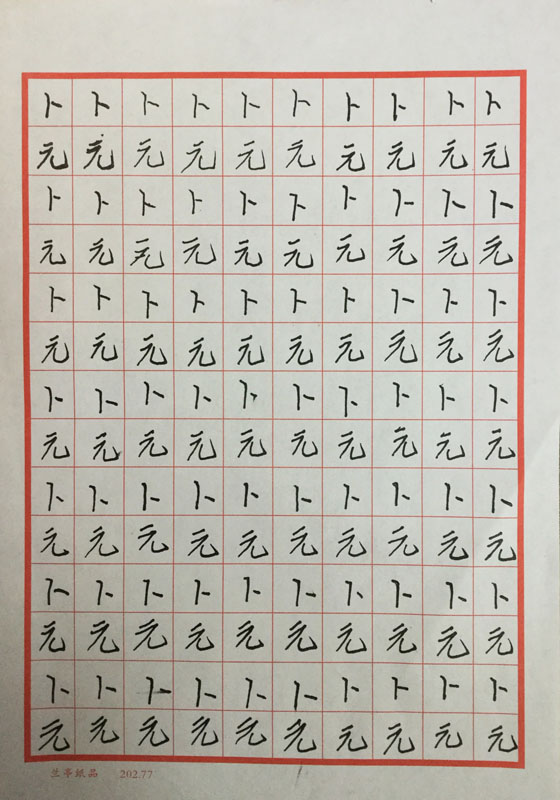 卜卜卜卜卜卜卜卜卜卜
元元元元元元元元元元
卜卜卜卜卜卜卜卜卜卜
元元元元元元元元元元
卜卜卜卜卜卜卜卜卜卜
元元元元元元元元元元
卜卜卜卜卜卜卜卜卜卜
元元元元元元元元元元
卜卜卜卜卜卜卜卜卜卜
元元元元元元元元元元
卜卜卜卜卜卜卜卜卜卜
元元元元元元元元元元
卜卜卜卜卜卜卜卜卜卜
元元元元元元元元元元
兰亭纸品 202.77